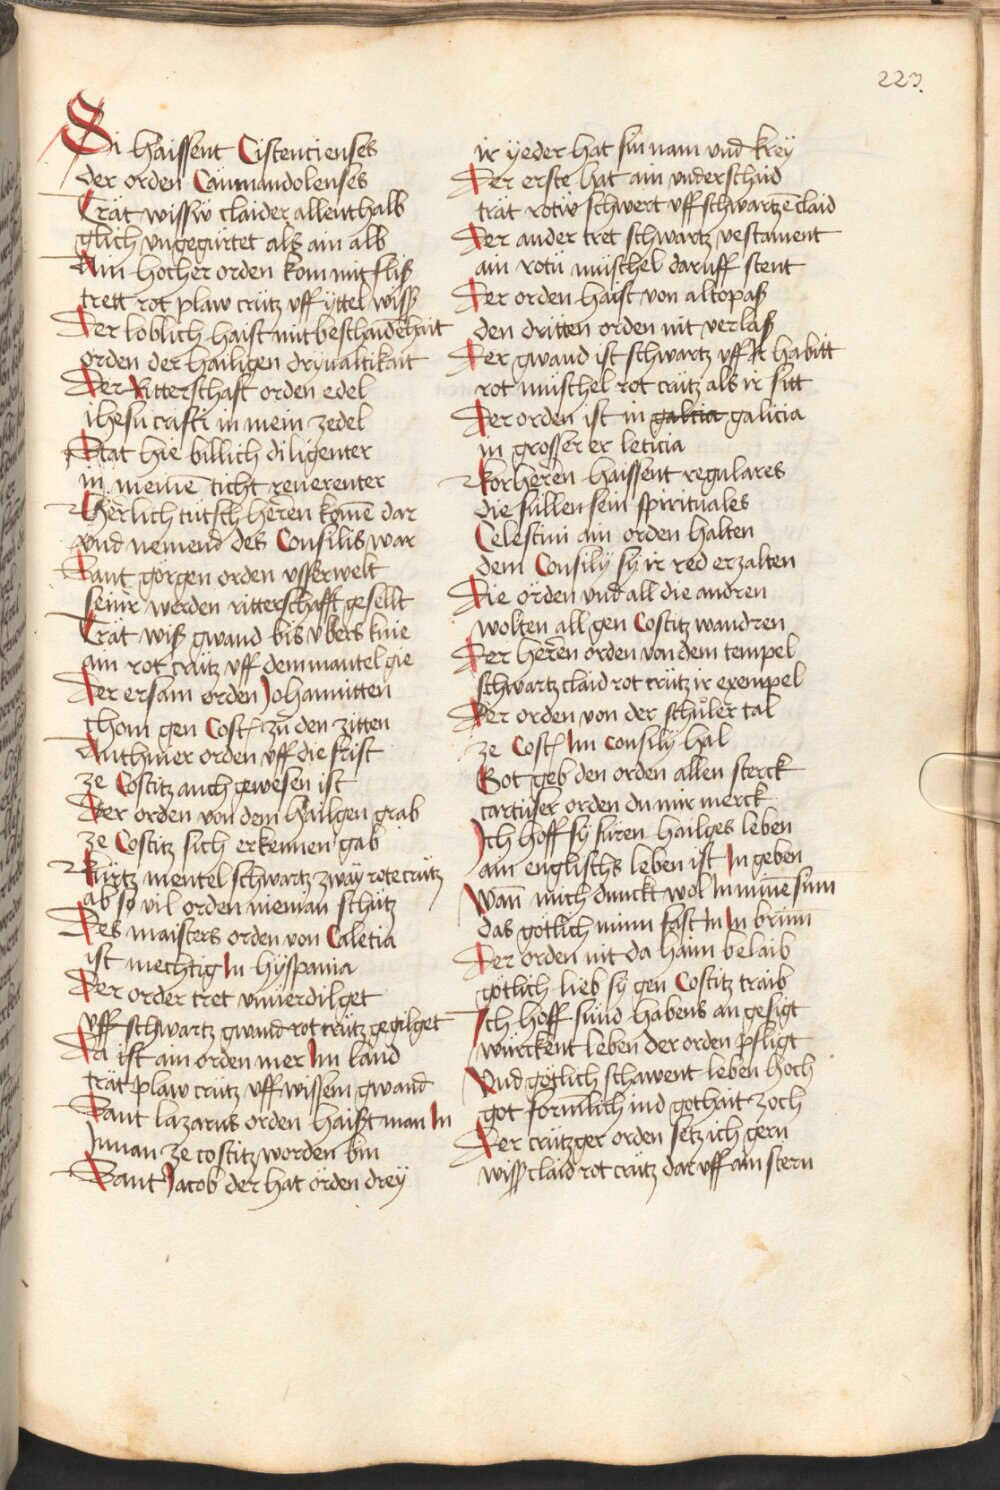 223.
Si haissent Cistencienses
der orden Cammandolenses
Trät wissiv claider allenthalb
glich vngegürtet als ain alb
Ain hocher orden kom mit fliß
trett rot plaw crütz vff yttel wiß
Der loblich haist mit beschaidenhait
orden der hailigen dryualtikait
Der Ritterschaft orden edel
ihesu cristi in mein zedel
Stat hie billich diligenter
in meinē ticht reuerenter
Herlich tütsch heren komē dar
vnd nemend des Consilis war
Sant görgen orden vsserwelt
seinr werden ritterschafft gesellt
Trät wiß gwand bis vbers knie
ain rot crütz vff dem mantel gie
Der ersam orden Johannitten
chom gen Cost zu den zitten
Anthinier orden vff die frist
ze Costitz auch gewesen ist
Der orden von dem hailgen grab
ze Costitz sich erkennen gab
Kürtz mentel schwartz zway rote crütz
ab so vil orden nieman schütz
Des maisters orden von Caletia
ist mechtig In hyspania
Der order tret vnuerdilget
vff schwartz gwand rot crütz gegilget
Da ist ain orden mer Im land
trät plaw crütz vff wissem gwand
Sant lazarus orden haist man In
Innan ze costitz worden bin
Sant Jacob der hat örden drey
ir yeder hat sin nam vnd krey
Der erste hat ain vnderschaid
trät rotiv schwert vff schwartzē claid
Der ander tret schwartz vestament
ain rotü müschel daruff stent
Der orden haist von altopaß
den dritten orden nit verlaß
Der gwand ist schwartz vff Ir habitt
rot müschel rot crütz als ir sitt
Der orden ist in galcia galicia
in grosser er leticia
Korheren haissent regulares
die süllen sein spirituales
Celestini ain orden halten
dem Consily sy ir red erzalten
Die örden vnd all die andren
wolten all gen Costitz wandren
Der herēn orden von dem tempel
schwartz claid rot crütz ir exempel
Der orden von der schůler tal
ze Cost Im consily hal
Got geb den orden allen sterck
cartüser orden du mir merck
Ich hoff sy füren hailges leben
ain englischs leben ist In geben
Wan̄ mich dunckt wol In minē sinn
das gotlich minn fast In In brinn
Der orden nit da haim belaib
götlich lieb sy gen Costitz traib
Ich hoff sünd habens an gesigt
würckent leben der orden pfligt
Vnd götlich schawent leben hoch
got formlich ind gothait zoch
Der crützger orden setz ich gern
wiß claid rot crütz dar vff ain stern